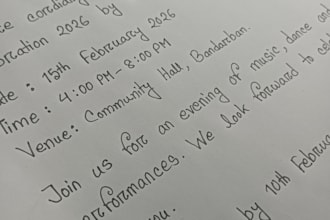 cordially
2026 by
Date : 15th February 2026
Time : 4:00 PM - 8:00 PM
Venue: Community Hall, Bandarban.
Join us for an evening of music, dance and
performances. We look forward to
by 10th February